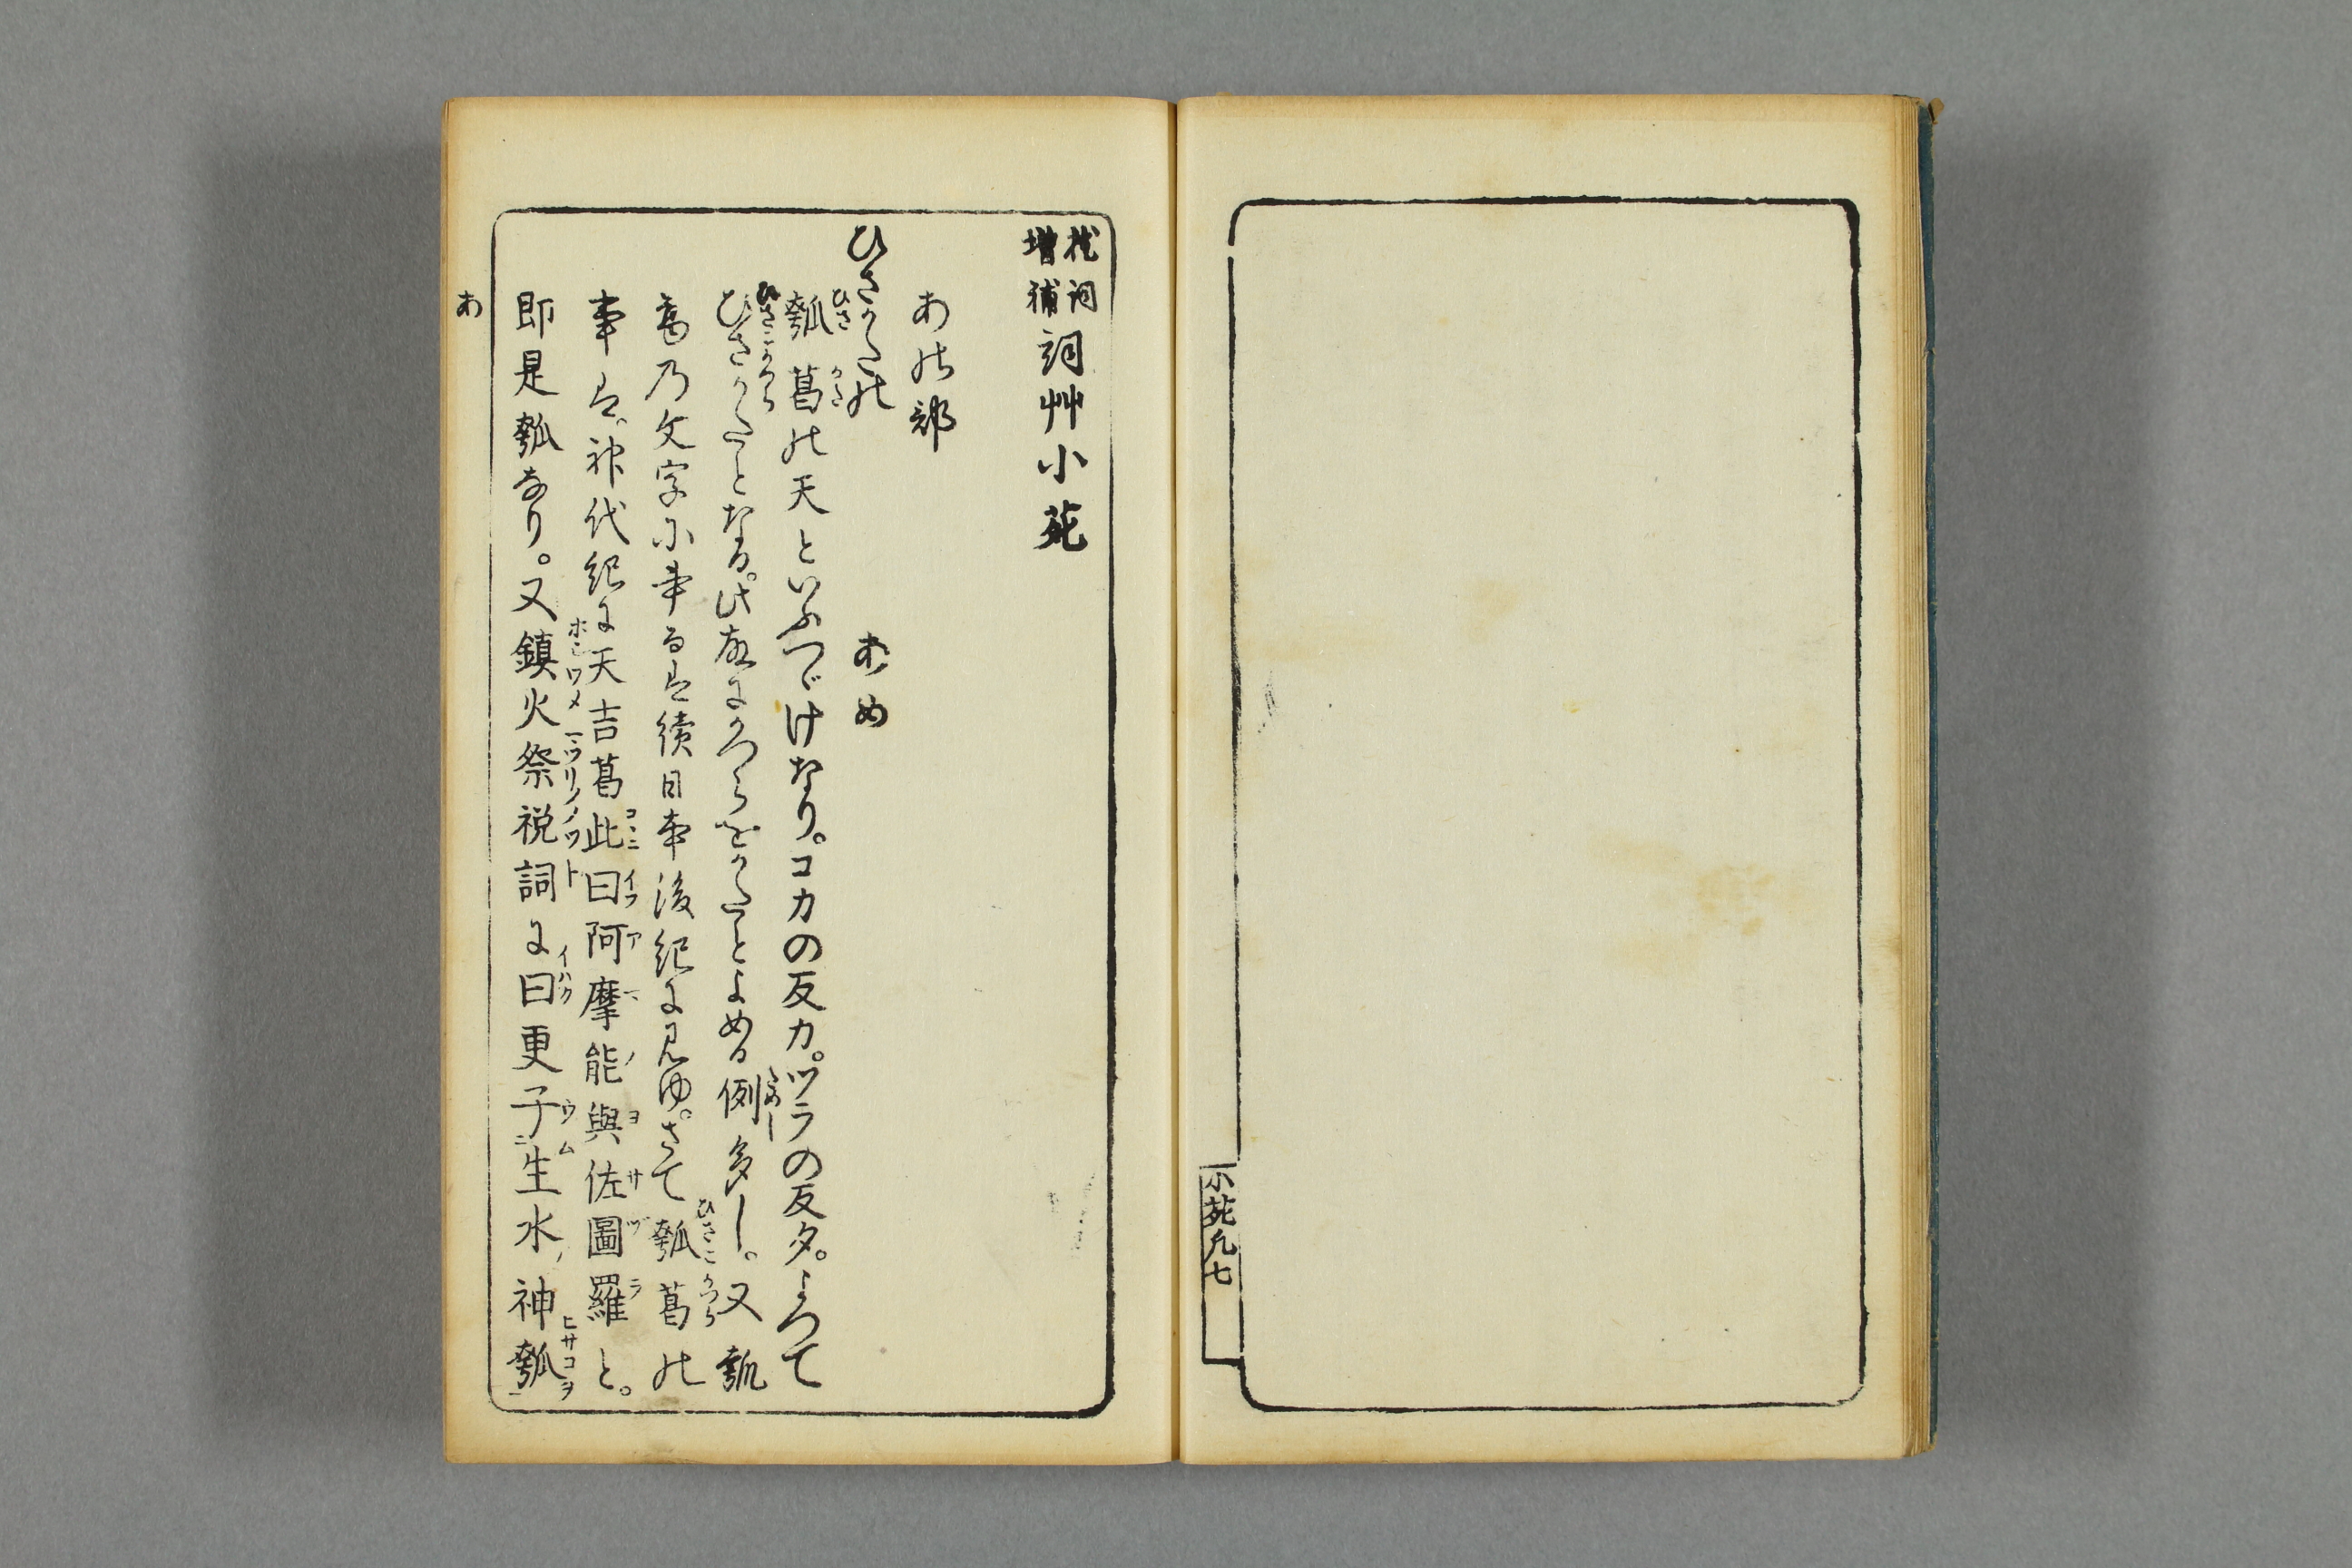 小苑凡七
枕詞
増補
詞艸小苑
あ能部
ひさかた能
あめ
瓠葛能天といふつゞけなり。コカの反カ。ツラの反タ。よつて
ひさかたとなる。此故にかつらをかたとよめる例多し。又瓠
葛乃文字に事るは続日本後紀に見ゆ。さて瓠葛能
事は。神代紀に天吉葛此曰阿摩能與佐圖羅と。
即是瓠なり。又鎮火祭祝詞に曰更子生水神瓠
あ